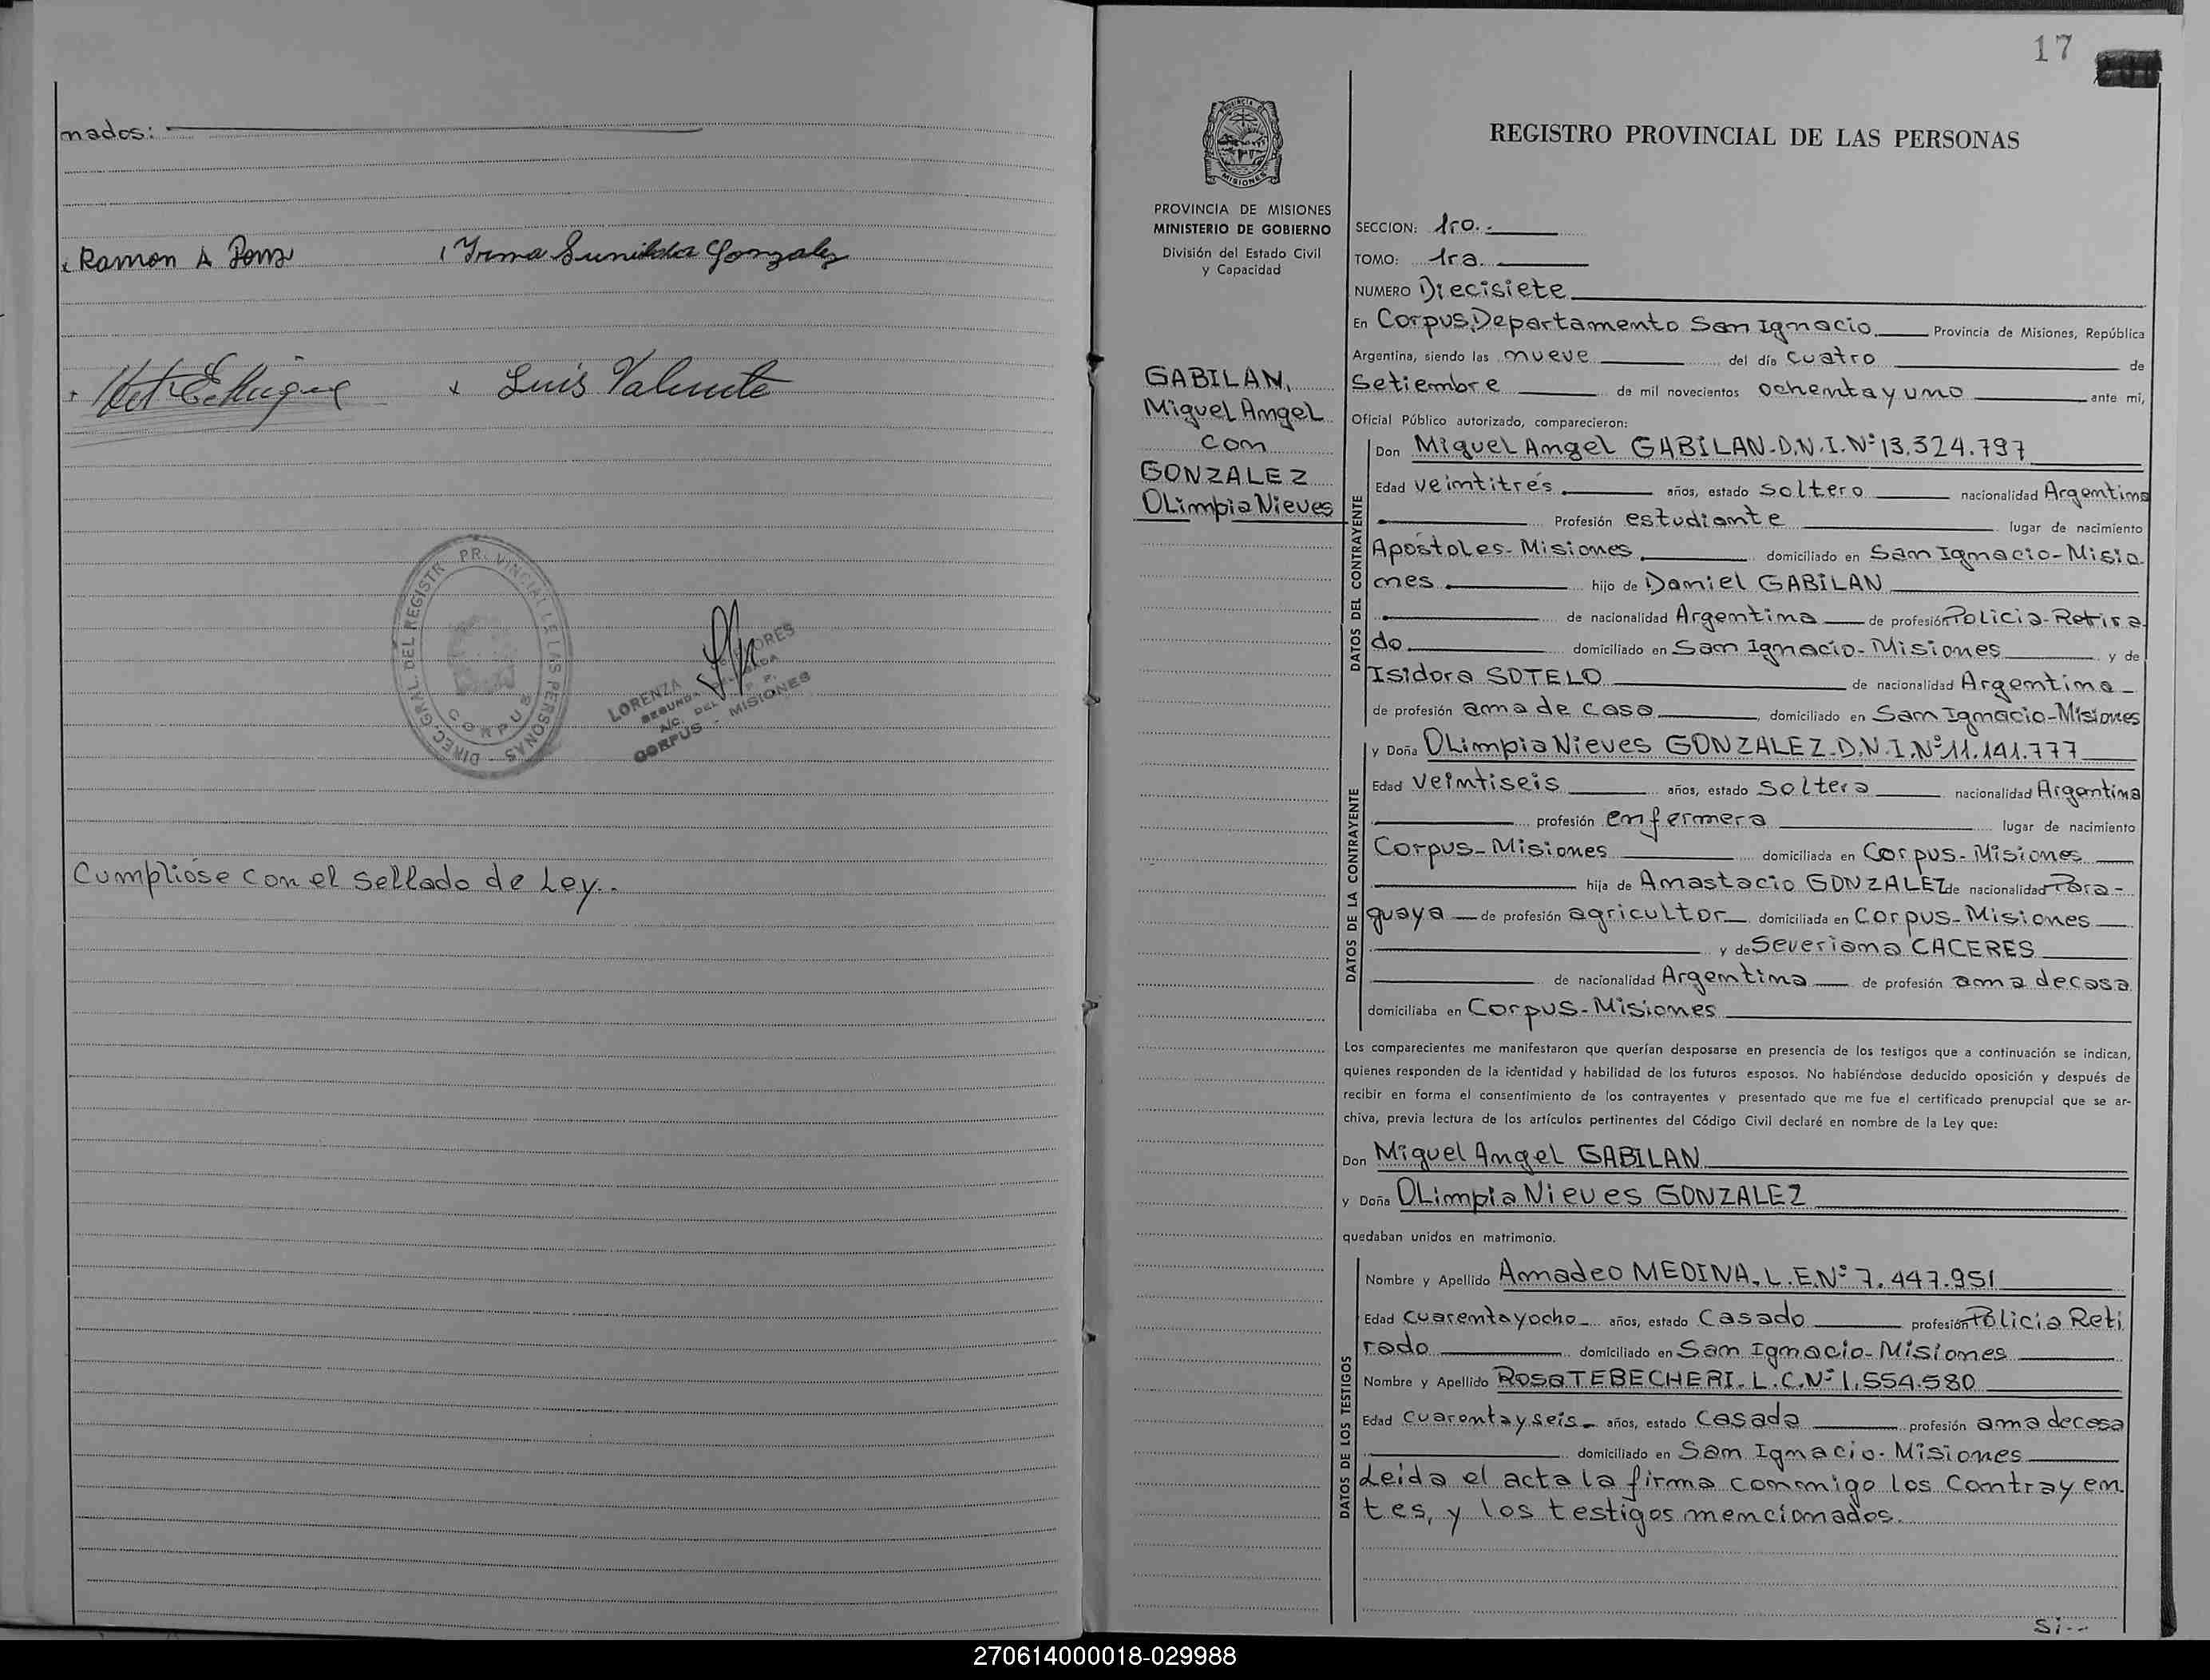 nados:
Ramon A Pons
Irma Sunilda Gonzalez
Luis Valente
DIREC. GRAL. DEL REGISTR PR. VINCIAL DE LAS PERSONAS
CORPUS
LORENZA ORES
SEGUNDA
A/C. DEL P. P.
CORPUS - MISIONES
Cumplióse con el sellado de Ley.-
17
PROVINCIA DE
MISIONES
PROVINCIA DE MISIONES
MINISTERIO DE GOBIERNO
División del Estado Civil
y Capacidad
GABILAN,
Miguel Angel
con
GONZALEZ
Olimpia Nieves
REGISTRO PROVINCIAL DE LAS PERSONAS
SECCION: 1ro.-
TOMO: 1ra.
NUMERO Diecisiete
En Corpus, Departamento San Ignacio. Provincia de Misiones, República
Argentina, siendo las nueve del día cuatro de
Setiembre de mil novecientos ochentayuno ante mi,
Oficial Público autorizado, comparecieron:
DATOS DEL CONTRAYENTE
Don Miguel Angel GABILAN-D.N.I.Nº13.324.797
Edad veintitrés años, estado soltero nacionalidad Argentina
Profesión estudiante lugar de nacimiento
Apóstoles-Misiones domiciliado en San Ignacio-Misio-
nes hijo de Daniel GABILAN
de nacionalidad Argentina de profesión Policia-Retira-
do domiciliado en San Ignacio-Misiones y de
Isidora SOTELO de nacionalidad Argentina-
de profesión ama de casa, domiciliado en San Ignacio-Misiones
DATOS DE LA CONTRAYENTE
y Doña Olimpia Nieves GONZALEZ-D.N.I.Nº11.141.777
Edad veintiseis años, estado soltera nacionalidad Argentina
profesión enfermera lugar de nacimiento
Corpus-Misiones domiciliada en Corpus-Misiones
hija de Anastacio GONZALEZ de nacionalidad Para-
guaya de profesión agricultor domiciliada en Corpus-Misiones
y de Severiana CACERES
de nacionalidad Argentina de profesión ama decasa
domiciliaba en Corpus-Misiones
Los comparecientes me manifestaron que querían desposarse en presencia de los testigos que a continuación se indican,
quienes responden de la identidad y habilidad de los futuros esposos. No habiéndose deducido oposición y después de
recibir en forma el consentimiento de los contrayentes y presentado que me fue el certificado prenupcial que se ar-
chiva, previa lectura de los artículos pertinentes del Código Civil declaré en nombre de la Ley que:
Don Miguel Angel GABILAN
y Doña Olimpia Nieves GONZALEZ
quedaban unidos en matrimonio.
DATOS DE LOS TESTIGOS
Nombre y Apellido Amadeo MEDINA. L.E.Nº 7.447.951
Edad cuarentayocho años, estado casado profesión Policia Reti
rado domiciliado en San Ignacio-Misiones
Nombre y Apellido Rosa TEBECHERI. L.C.Nº 1.554.580
Edad cuarentayseis años, estado casada profesión ama decasa
domiciliado en San Ignacio-Misiones
Leida el acta la firma conmigo los contrayen-
tes, y los testigos mencionados.
Si--
270614000018-029988